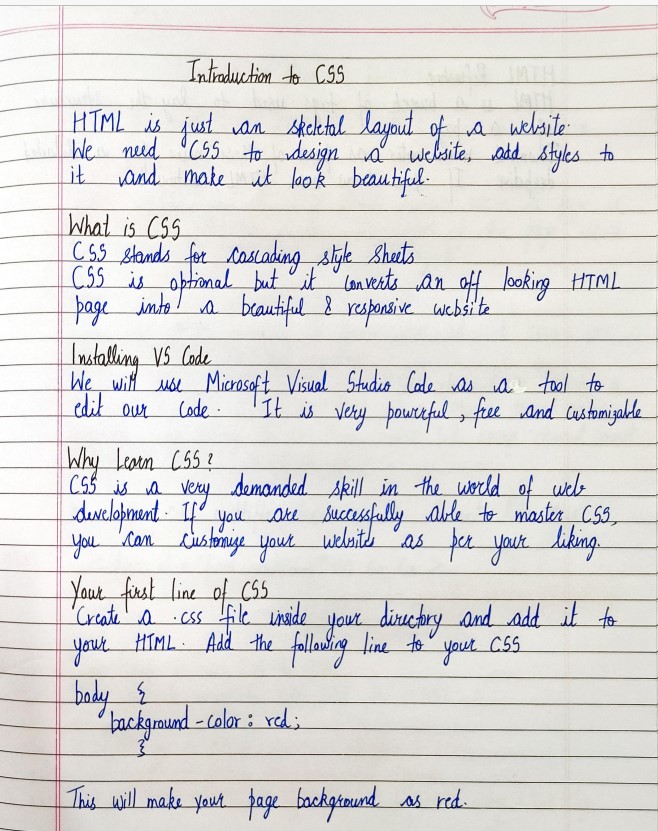 Introduction to CSS
HTML is just an skeletal layout of a website.
We need CSS to design a website, add styles to
it and make it look beautiful.
What is CSS
CSS stands for Cascading style sheets
CSS is optional but it converts an off looking HTML
page into a beautiful & responsive website
Installing VS Code
We will use Microsoft Visual Studio Code as a tool to
edit our code. It is very powerful, free and customizable
Why Learn CSS?
CSS is a very demanded skill in the world of web
development. If you are successfully able to master CSS,
you can customize your website as per your liking.
Your first line of CSS
Create a .css file inside your directory and add it to
your HTML. Add the following line to your CSS
body {
background-color: red;
}
This will make your page background as red.